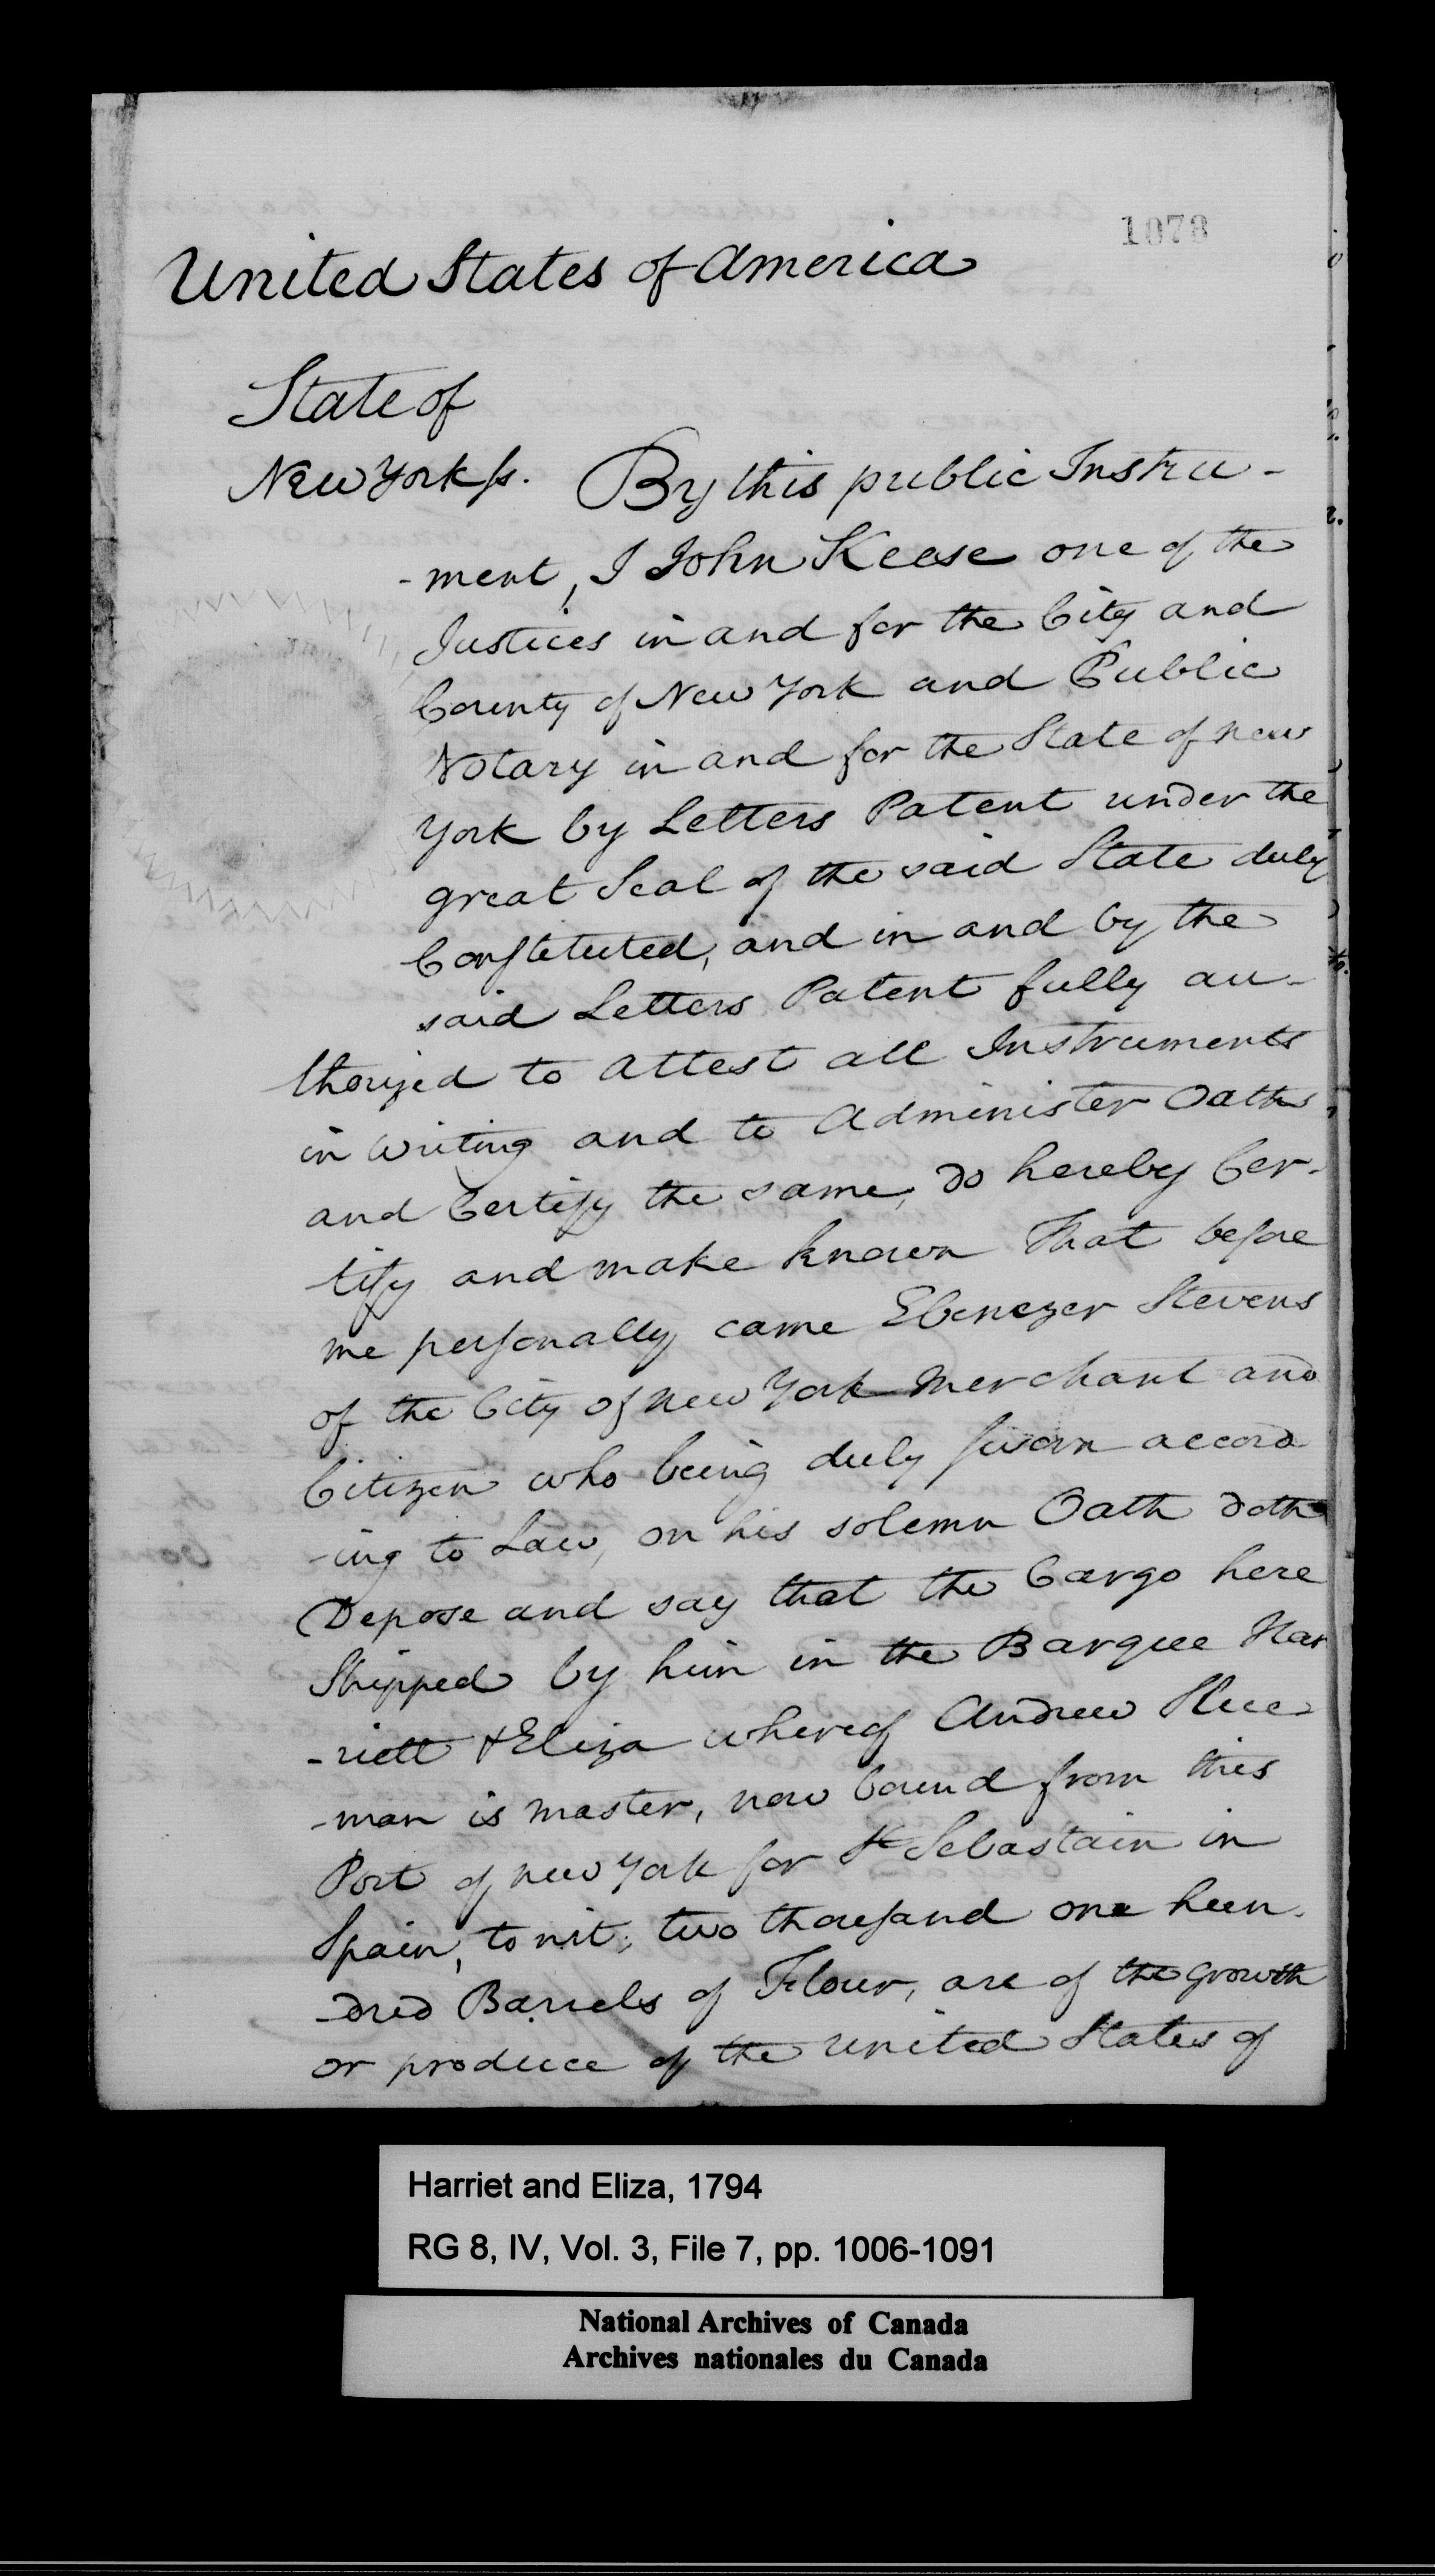 1078
United States of America
State of
New York ss. By this public Instru-
-ment, I John Keese one of the
Justices in and for the City and
County of New York and Public
Notary in and for the State of new
York by Letters Patent under the
great Seal of the said State duly
Constituted, and in and by the
said Letters Patent fully au-
thorized to attest all Instruments
in writing and to administer Oaths
and Certify the same, do hereby Cer-
tify and make known That before
me personally came Ebenezer Stevens
of the City of New York Merchant and
Citizen who being duly sworn accord
-ing to Law, on his solemn Oath doth
Depose and say that the Cargo here
Shipped by him in the Barque Har
-riett & Eliza whereof Andrew
-man is master, now bound from this
Port of new York for St Sebastain in
Spain, to wit; two thousand one hun-
-dred Barrels of Flour, are of the growth
or produce of the united States of
Harriet and Eliza, 1794
RG 8, IV, Vol. 3, File 7, pp. 1006-1091
National Archives of Canada
Archives nationales du Canada